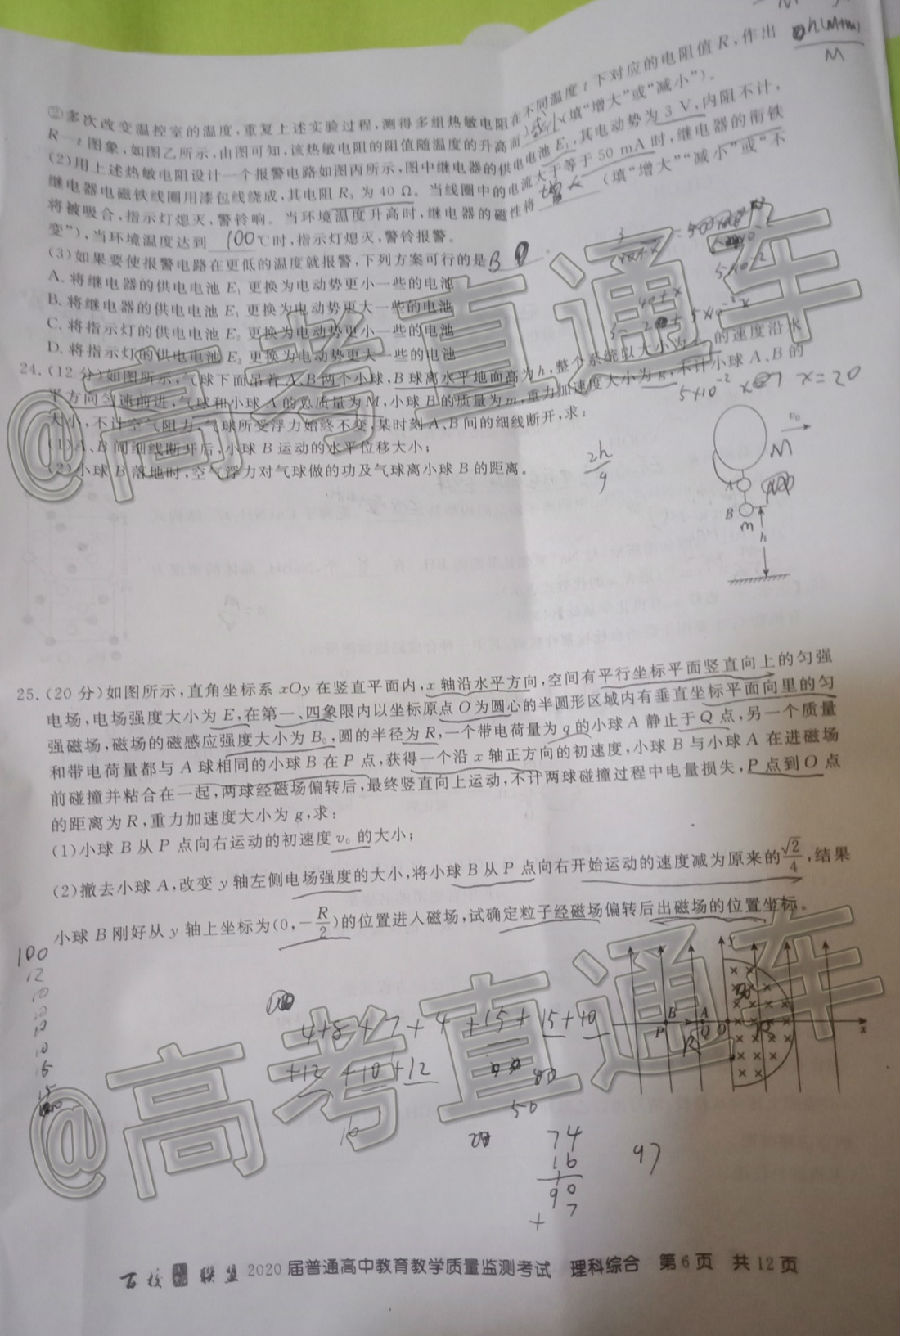 ②多次改变温控室的温度,重复上述实验过程,测得多组热敏电阻在不同温度 t 下对应的电阻值 R,作出
R—t 图象,如图乙所示,由图可知,该热敏电阻的阻值随温度的升高而减小(填“增大”或“减小”)。
(2)用上述热敏电阻设计一个报警电路如图丙所示,图中继电器的供电电池 E₁,其电动势为 3 V,内阻不计,
继电器电磁铁线圈用漆包线绕成,其电阻 R₀ 为 40 Ω。当线圈中的电流大于等于 50 mA 时,继电器的衔铁
将被吸合,指示灯熄灭,警铃响。当环境温度升高时,继电器的磁性将 (填“增大”“减小”或“不
变”),当环境温度达到 100℃时,指示灯熄灭,警铃报警。
(3)如果要使报警电路在更低的温度就报警,下列方案可行的是 B
A. 将继电器的供电电池 E₁ 更换为电动势更小一些的电池
B. 将继电器的供电电池 E₁ 更换为电动势更大一些的电池
C. 将指示灯的供电电池 E₂ 更换为电动势更小一些的电池
D. 将指示灯的供电电池 E₂ 更换为电动势更大一些的电池
24.(12 分)如图所示,气球下面吊着 A、B 两个小球,B 球离水平地面高为 h,整个系统以大小为 的速度沿水
平方向匀速前进,气球和小球 A 的总质量为 M,小球 B 的质量为 m,重力加速度大小为 g,不计小球 A、B 的
大小,不计空气阻力,气球所受浮力始终不变,某时刻 A、B 间的细线断开,求:
(1)A、B 间细线断开后,小球 B 运动的水平位移大小;
(2)小球 B 落地时,空气浮力对气球做的功及气球离小球 B 的距离。
2h
g
5×10⁻² x=20
v₀
M
A
B
m
h
25.(20 分)如图所示,直角坐标系 xOy 在竖直平面内,x 轴沿水平方向,空间有平行坐标平面竖直向上的匀强
电场,电场强度大小为 E,在第一、四象限内以坐标原点 O 为圆心的半圆形区域内有垂直坐标平面向里的匀
强磁场,磁场的磁感应强度大小为 B₀,圆的半径为 R,一个带电荷量为 q 的小球 A 静止于 Q 点,另一个质量
和带电荷量都与 A 球相同的小球 B 在 P 点,获得一个沿 x 轴正方向的初速度,小球 B 与小球 A 在进磁场
前碰撞并粘合在一起,两球经磁场偏转后,最终竖直向上运动,不计两球碰撞过程中电量损失,P 点到 O 点
的距离为 R,重力加速度大小为 g,求:
(1)小球 B 从 P 点向右运动的初速度 v₀ 的大小;
(2)撤去小球 A,改变 y 轴左侧电场强度的大小,将小球 B 从 P 点向右开始运动的速度减为原来的 √2/4,结果
小球 B 刚好从 y 轴上坐标为(0,-R/2)的位置进入磁场,试确定粒子经磁场偏转后出磁场的位置坐标。
100
12
10
y
B A
P Q O x
R
4+8+7+4+15+15+10
+12+10+12
80
50
74
16
90
+ 7
97
@高考直通车
@高考直通车
百校联盟 2020 届普通高中教育教学质量监测考试 理科综合 第 6 页 共 12 页